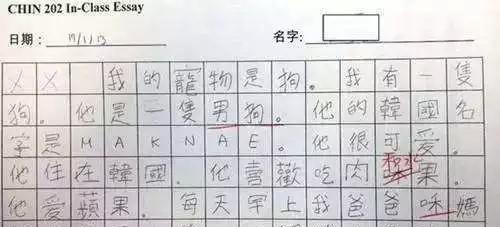 CHIN 202 In-Class Essay
日期: 名字:
X X 我的寵物是狗。我有一隻
狗。他是一隻男狗。他的韓國名
字是MAKNAE。他很可愛。
他住在韓國。他喜歡吃肉和水果。
他愛蘋果。每天早上我爸爸咊媽